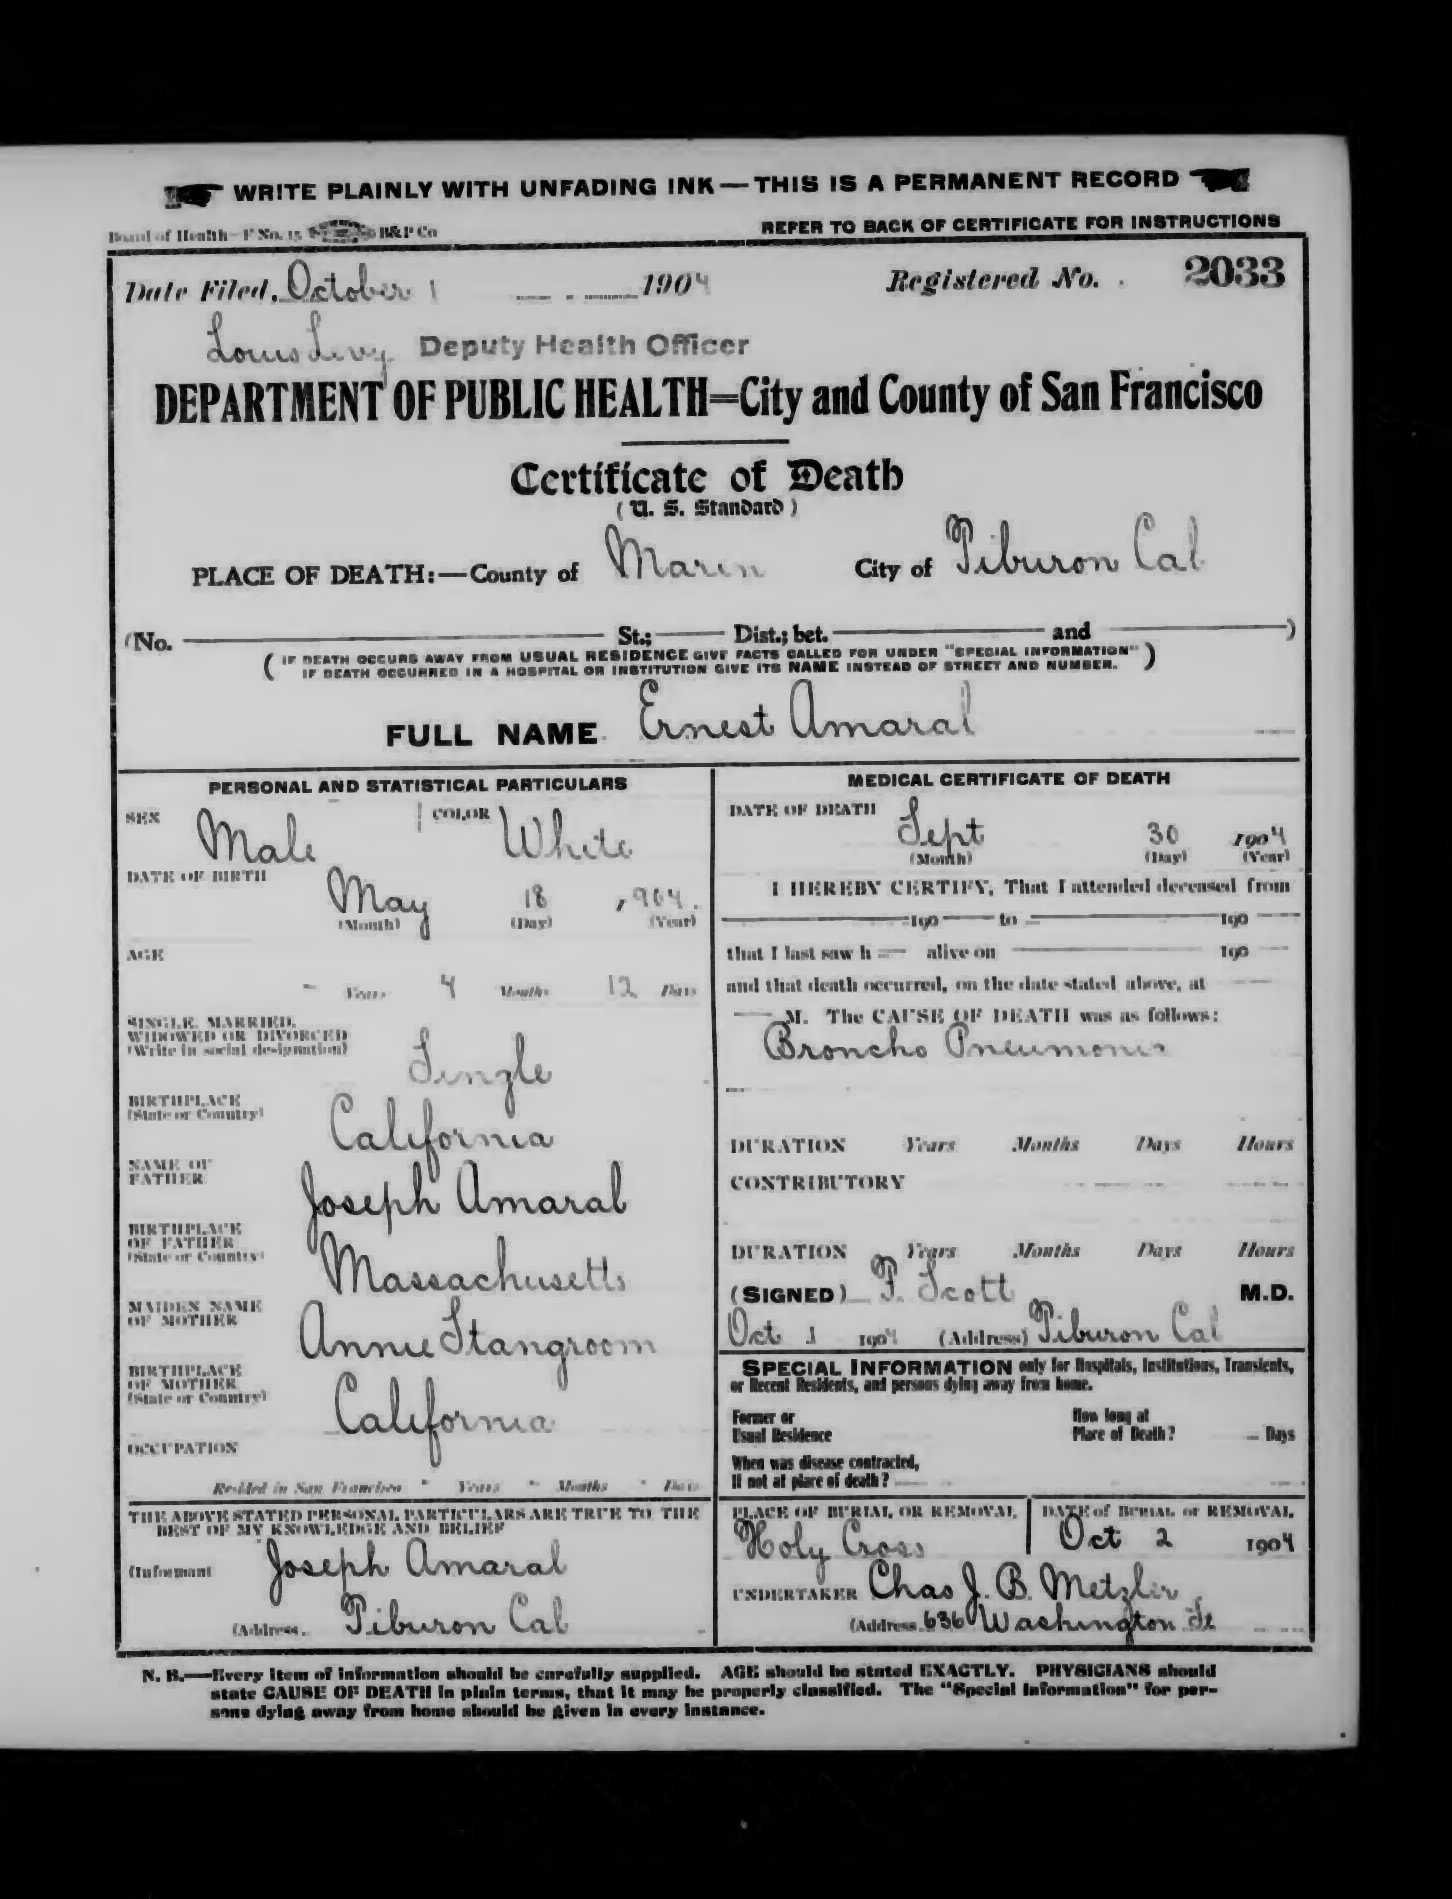 WRITE PLAINLY WITH UNFADING INK—THIS IS A PERMANENT RECORD
Board of Health—F No. 15 B&P Co
REFER TO BACK OF CERTIFICATE FOR INSTRUCTIONS
Date Filed, October 1 1904 Registered No. 2033
Louis Levy Deputy Health Officer
DEPARTMENT OF PUBLIC HEALTH=City and County of San Francisco
Certificate of Death
(U. S. Standard)
PLACE OF DEATH:—County of Marin City of Tiburon Cal
(No. St.; Dist.; bet. and )
(IF DEATH OCCURS AWAY FROM USUAL RESIDENCE GIVE FACTS CALLED FOR UNDER "SPECIAL INFORMATION"
IF DEATH OCCURRED IN A HOSPITAL OR INSTITUTION GIVE ITS NAME INSTEAD OF STREET AND NUMBER.)
FULL NAME Ernest Amaral
PERSONAL AND STATISTICAL PARTICULARS
SEX Male COLOR White
DATE OF BIRTH
May 18 , 904.
(Month) (Day) (Year)
AGE
- Years 4 Months 12 Days
SINGLE, MARRIED,
WIDOWED OR DIVORCED
(Write in social designation) Single
BIRTHPLACE
(State or Country) California
NAME OF
FATHER Joseph Amaral
BIRTHPLACE
OF FATHER
(State or Country) Massachusetts
MAIDEN NAME
OF MOTHER Annie Stangroom
BIRTHPLACE
OF MOTHER
(State or Country) California
OCCUPATION
Resided in San Francisco - Years - Months - Days
THE ABOVE STATED PERSONAL PARTICULARS ARE TRUE TO THE
BEST OF MY KNOWLEDGE AND BELIEF
(Informant Joseph Amaral
(Address. Tiburon Cal
MEDICAL CERTIFICATE OF DEATH
DATE OF DEATH
Sept 30 1904
(Month) (Day) (Year)
I HEREBY CERTIFY, That I attended deceased from
190 to 190
that I last saw h alive on 190
and that death occurred, on the date stated above, at
M. The CAUSE OF DEATH was as follows:
Broncho Pneumonia
DURATION Years Months Days Hours
CONTRIBUTORY
DURATION Years Months Days Hours
(SIGNED) F. Scott M.D.
Oct 1 1904 (Address) Tiburon Cal
SPECIAL INFORMATION only for Hospitals, Institutions, Transients,
or Recent Residents, and persons dying away from home.
Former or
Usual Residence
How long at
Place of Death? Days
When was disease contracted,
If not at place of death?
PLACE OF BURIAL OR REMOVAL
Holy Cross
DATE of BURIAL or REMOVAL
Oct 2 1904
UNDERTAKER Chas J. B. Metzler
(Address. 636 Washington St
N. B.—Every item of information should be carefully supplied. AGE should be stated EXACTLY. PHYSICIANS should
state CAUSE OF DEATH in plain terms, that it may be properly classified. The "Special Information" for per-
sons dying away from home should be given in every instance.